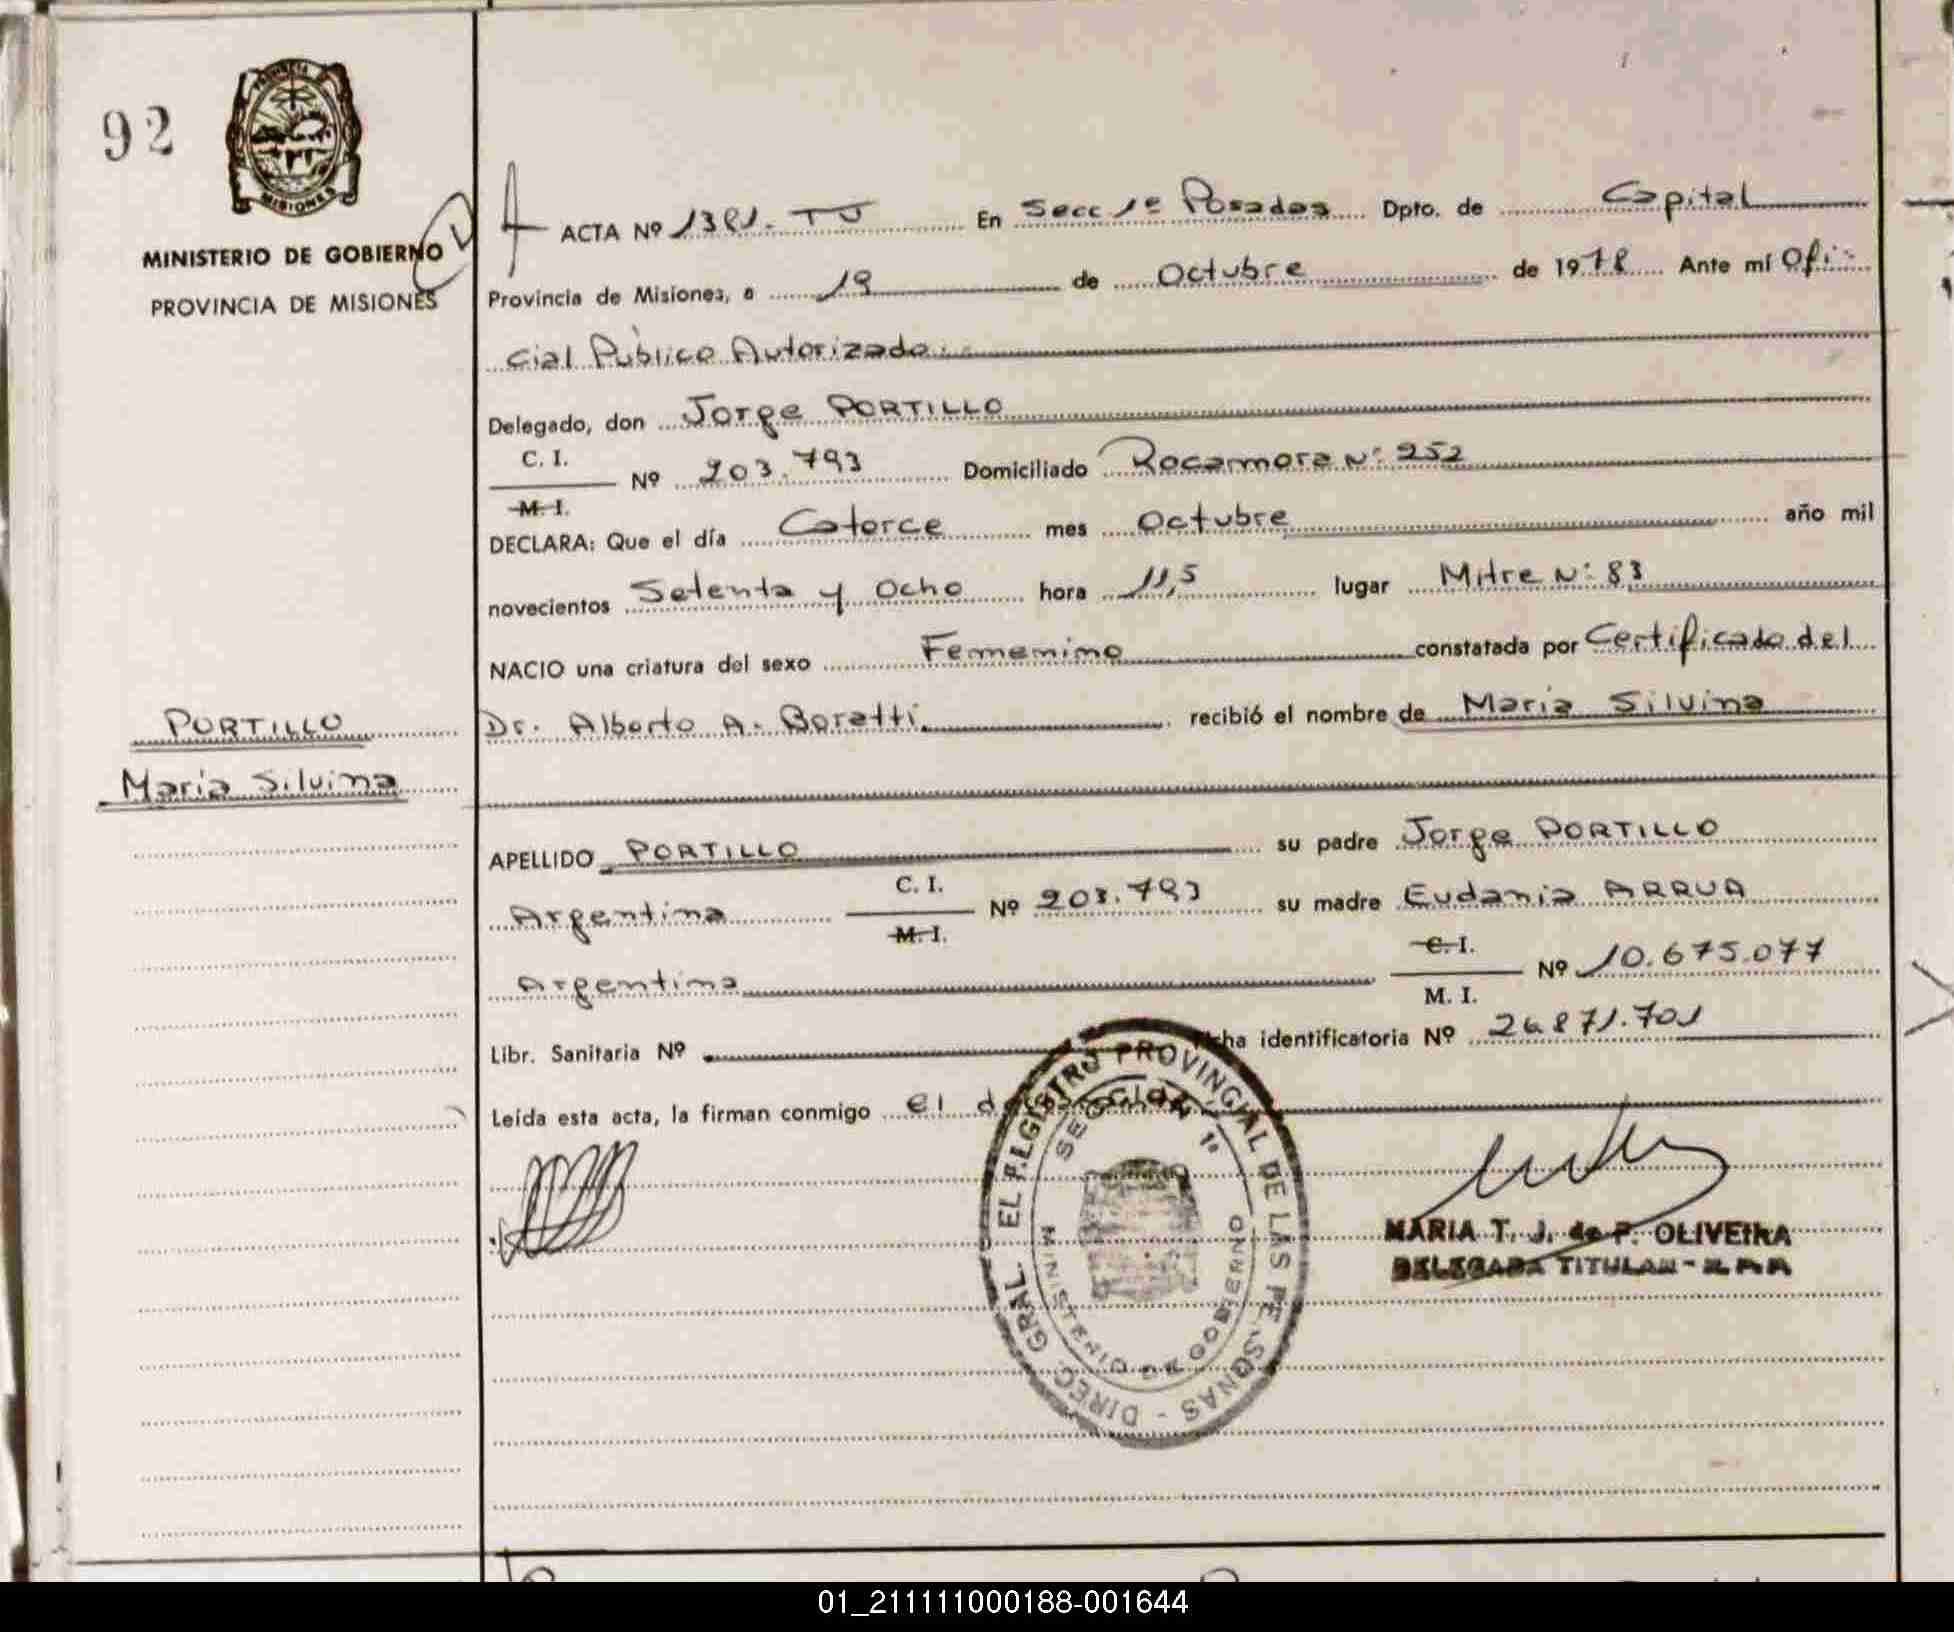 92
PROVINCIA DE
MISIONES
MINISTERIO DE GOBIERNO
PROVINCIA DE MISIONES
PORTILLO
Maria Silvina
ACTA Nº 1381.- TU En Secc 1º Posadas Dpto. de Capital
Provincia de Misiones, a 19 de Octubre de 1978 Ante mí Ofi-
cial Público Autorizado.
Delegado, don Jorge PORTILLO
C. I.
M. I.
Nº 203.793 Domiciliado Rocamora Nº 252
DECLARA: Que el día Catorce mes Octubre año mil
novecientos Setenta y Ocho hora 11,5 lugar Mitre Nº 83
NACIO una criatura del sexo Femenino constatada por Certificado del
Dr. Alberto A. Boratti. recibió el nombre de Maria Silvina
APELLIDO PORTILLO su padre Jorge PORTILLO
Argentina C. I. M. I. Nº 203.793 su madre Eudania ARRUA
Argentina C. I. M. I. Nº 10.675.077
Libr. Sanitaria Nº cha identificatoria Nº 26.871.701
Leída esta acta, la firman conmigo el
DIREC. GRAL. EL REGISTRO PROVINCIAL DE LAS PERSONAS -
SECCION 1ª
MINISTERIO DE GOBIERNO
MARIA T. J. de P. OLIVEIRA
DELEGADA TITULAR -
01_211111000188-001644